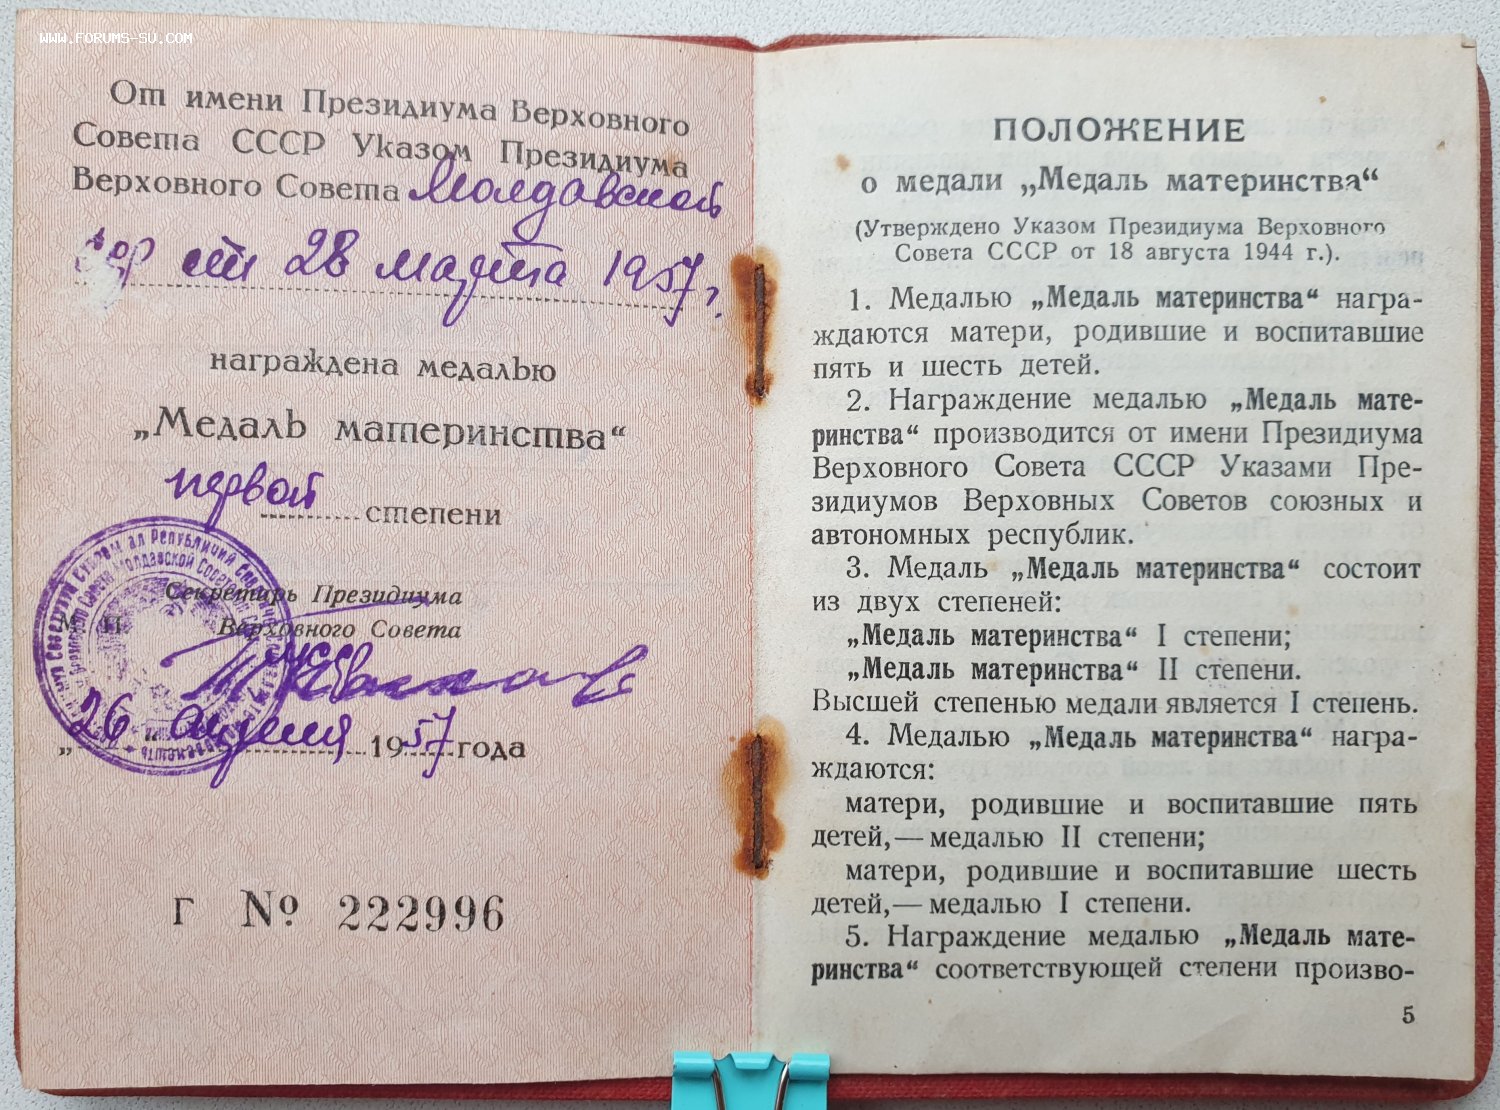 WWW.FORUMS-SU.COM
От имени Президиума Верховного
Совета СССР Указом Президиума
Верховного Совета Молдавской
ССР от 28 марта 1957 г.
награждена медалью
„Медаль материнства“
первой степени
Секретарь Президиума
М. П. Верховного Совета
МССР
„26“ апреля 1957 года
Г № 222996
ПОЛОЖЕНИЕ
о медали „Медаль материнства“
(Утверждено Указом Президиума Верховного
Совета СССР от 18 августа 1944 г.).
1. Медалью „Медаль материнства“ награ-
ждаются матери, родившие и воспитавшие
пять и шесть детей.
2. Награждение медалью „Медаль мате-
ринства“ производится от имени Президиума
Верховного Совета СССР Указами Пре-
зидиумов Верховных Советов союзных и
автономных республик.
3. Медаль „Медаль материнства“ состоит
из двух степеней:
„Медаль материнства“ I степени;
„Медаль материнства“ II степени.
Высшей степенью медали является I степень.
4. Медалью „Медаль материнства“ награ-
ждаются:
матери, родившие и воспитавшие пять
детей,— медалью II степени;
матери, родившие и воспитавшие шесть
детей,— медалью I степени.
5. Награждение медалью „Медаль мате-
ринства“ соответствующей степени произво-
5